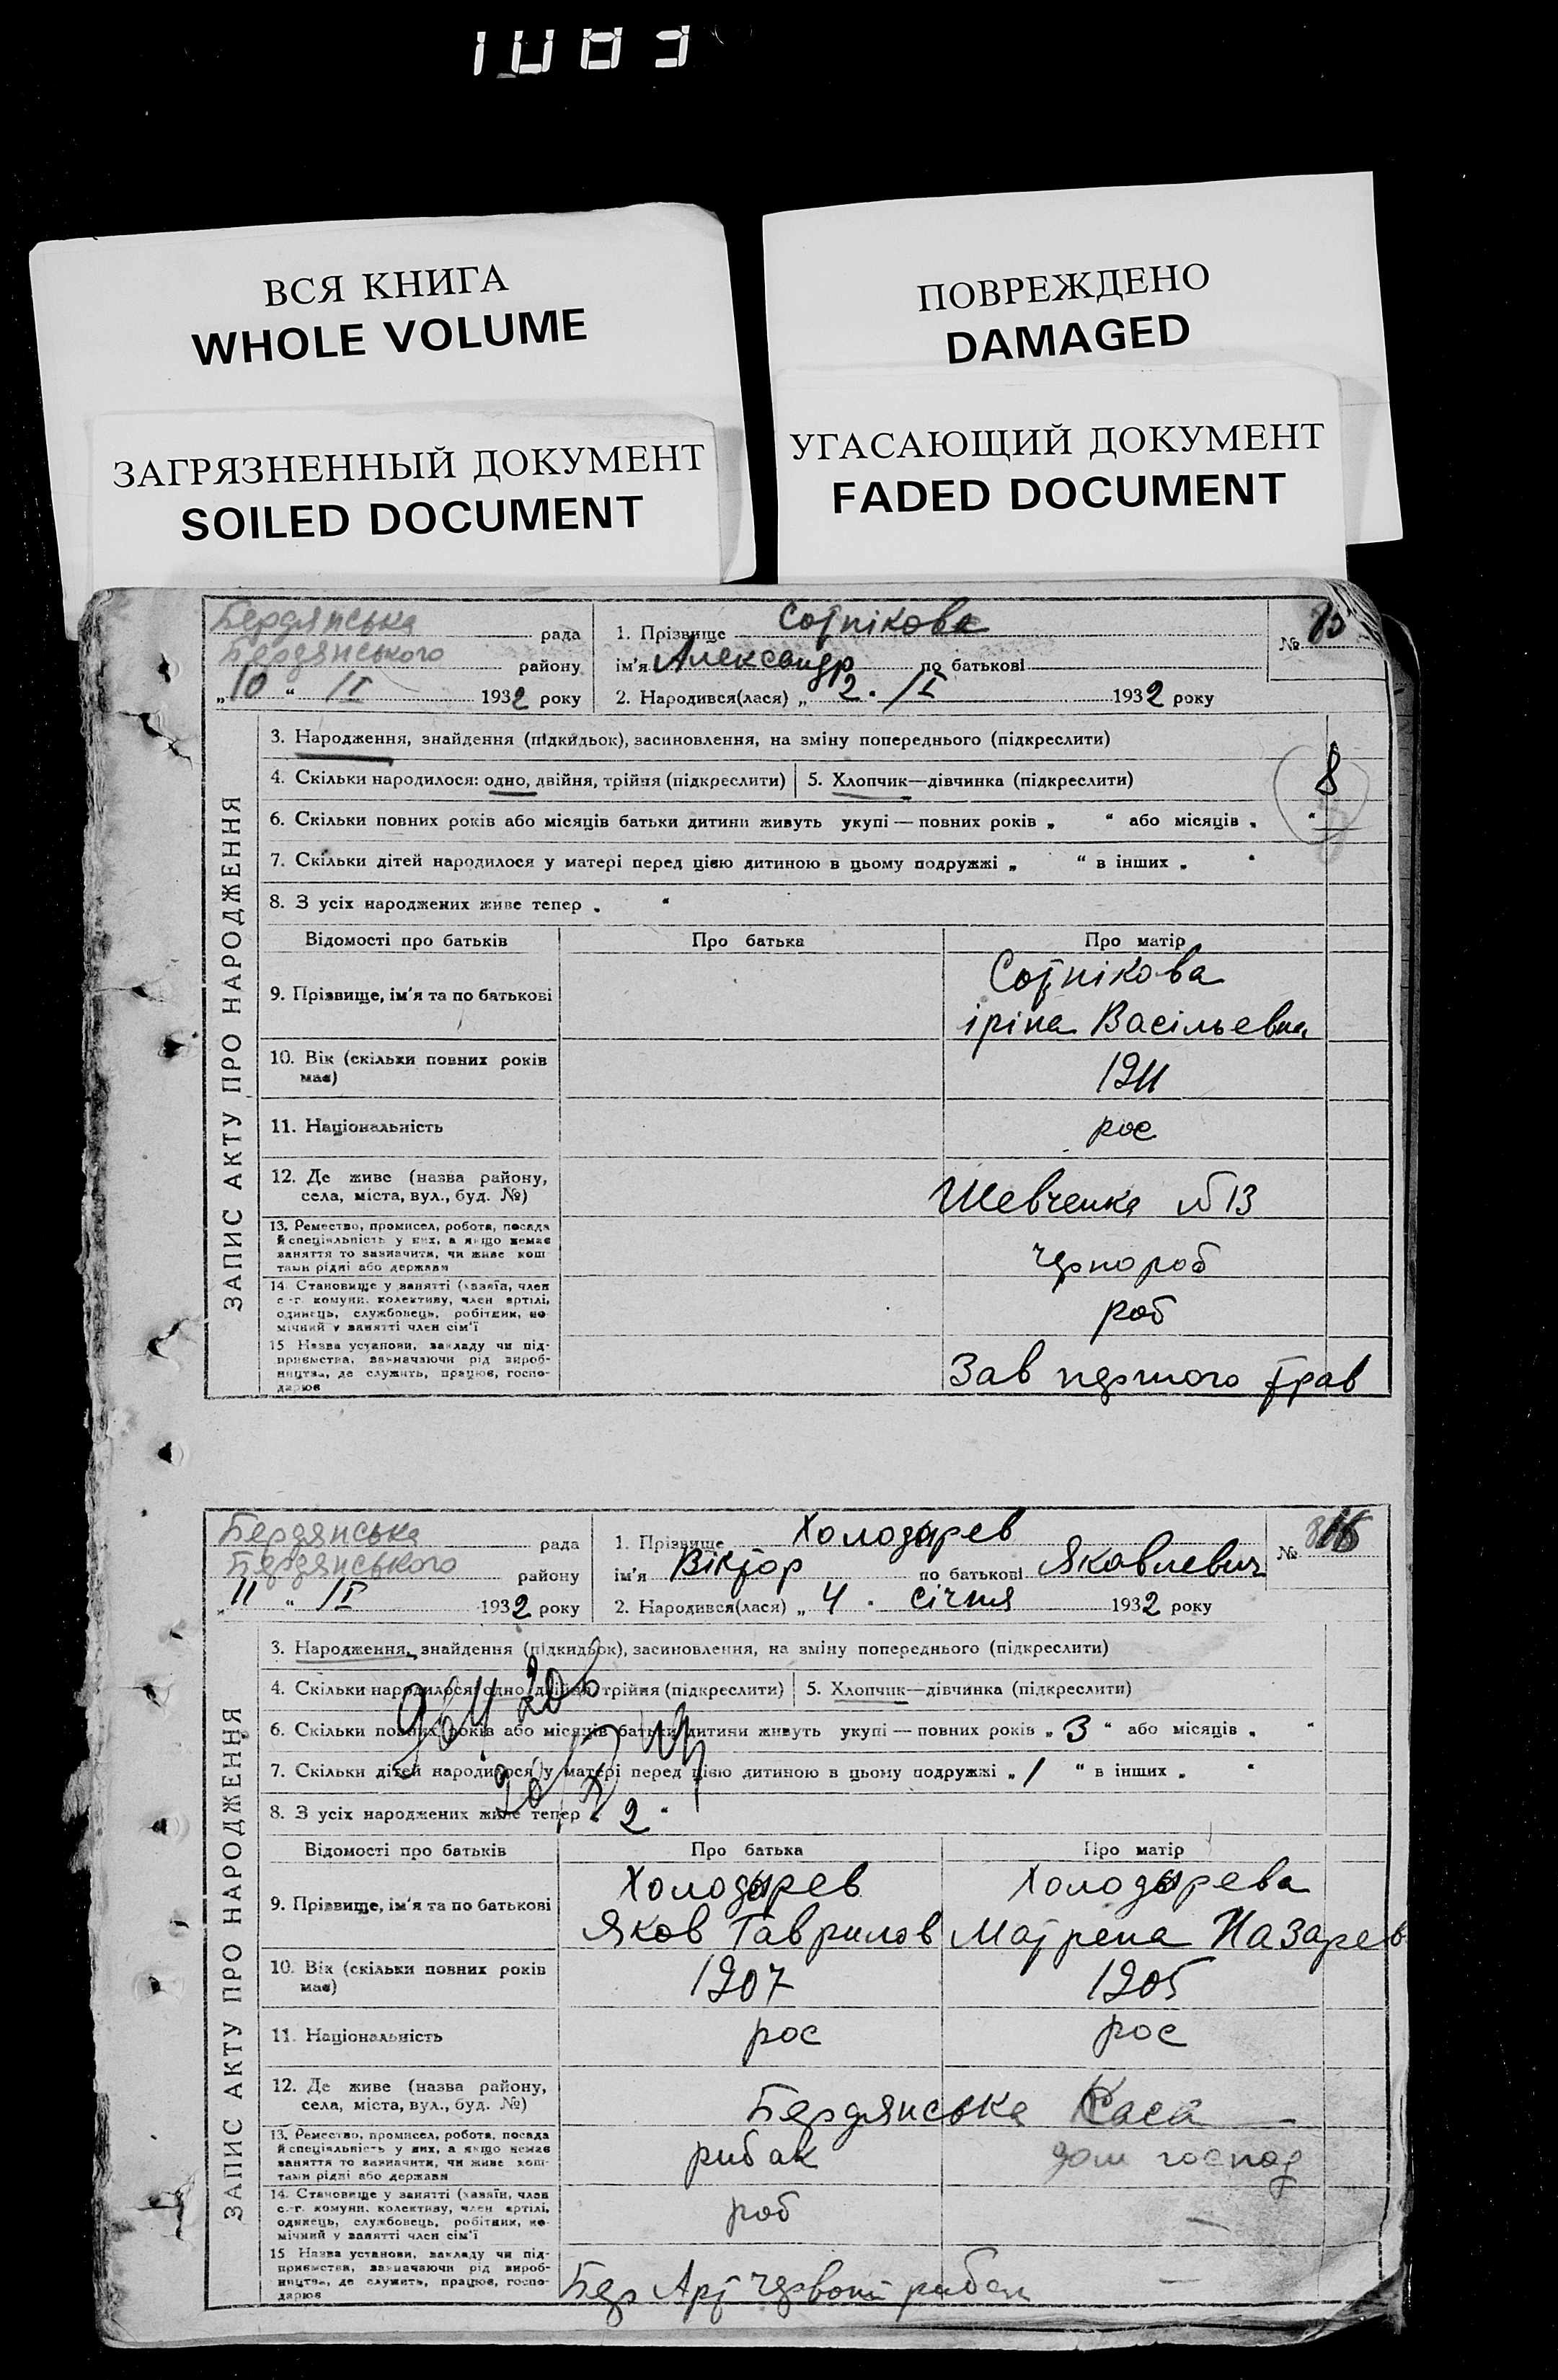 ВСЯ КНИГА
WHOLE VOLUME
ПОВРЕЖДЕНО
DAMAGED
ЗАГРЯЗНЕННЫЙ ДОКУМЕНТ
SOILED DOCUMENT
УГАСАЮЩИЙ ДОКУМЕНТ
FADED DOCUMENT
ЗАПИС АКТУ ПРО НАРОДЖЕННЯ
Бердянська рада
Бердянського району
„10“ /I 1932 року
1. Прізвище Сотнікова
ім'я Александр по батькові
2. Народився(лася) „2. /I 1932 року
№
3. Народження, знайдення (підкидьок), засиновлення, на зміну попереднього (підкреслити)
4. Скільки народилося: одно, двійня, трійня (підкреслити) 5. Хлопчик—дівчинка (підкреслити)
8
6. Скільки повних років або місяців батьки дитини живуть укупі — повних років „ “ або місяців „ “
7. Скільки дітей народилося у матері перед цією дитиною в цьому подружжі „ “ в інших „ “
8. З усіх народжених живе тепер „ “
Відомості про батьків Про батька Про матір
9. Прізвище, ім'я та по батькові Сотнікова
іріна Васільевна
10. Вік (скільки повних років має) 1911
11. Національність рос
12. Де живе (назва району, села, міста, вул., буд. №) Шевченка №13
13. Ремество, промисел, робота, посада й спеціяльність у них, а якщо немає заняття то зазначити, чи живе коштами рідні або держави чорнороб
14. Становище у занятті (хазяїн, член с.-г. комуни, колективу, член артілі, одинець, службовець, робітник, помічний у занятті член сім'ї роб
15 Назва установи, закладу чи підприємства, зазначаючи рід виробництва, де служить, працює, господарює Зав першого трав
ЗАПИС АКТУ ПРО НАРОДЖЕННЯ
Бердянська рада
Бердянського району
„11“ /I 1932 року
1. Прізвище Холодарев
ім'я Віктор по батькові Яковлевич
2. Народився(лася) „4. січня 1932 року
№
3. Народження, знайдення (підкидьок), засиновлення, на зміну попереднього (підкреслити)
4. Скільки народилося: одно, двійня, трійня (підкреслити) 5. Хлопчик—дівчинка (підкреслити)
6. Скільки повних років або місяців батьки дитини живуть укупі — повних років „3“ або місяців „ “
7. Скільки дітей народилося у матері перед цією дитиною в цьому подружжі „1“ в інших „ “
8. З усіх народжених живе тепер „2“
Відомості про батьків Про батька Про матір
9. Прізвище, ім'я та по батькові Холодарев Холодарева
Яков Гаврилов Матрена Назарев
10. Вік (скільки повних років має) 1907 1905
11. Національність рос рос
12. Де живе (назва району, села, міста, вул., буд. №) Бердянська Коса
13. Ремество, промисел, робота, посада й спеціяльність у них, а якщо немає заняття то зазначити, чи живе коштами рідні або держави рибак дом господ
14. Становище у занятті (хазяїн, член с.-г. комуни, колективу, член артілі, одинець, службовець, робітник, помічний у занятті член сім'ї роб —
15 Назва установи, закладу чи підприємства, зазначаючи рід виробництва, де служить, працює, господарює Бер Арт Червони рибак —